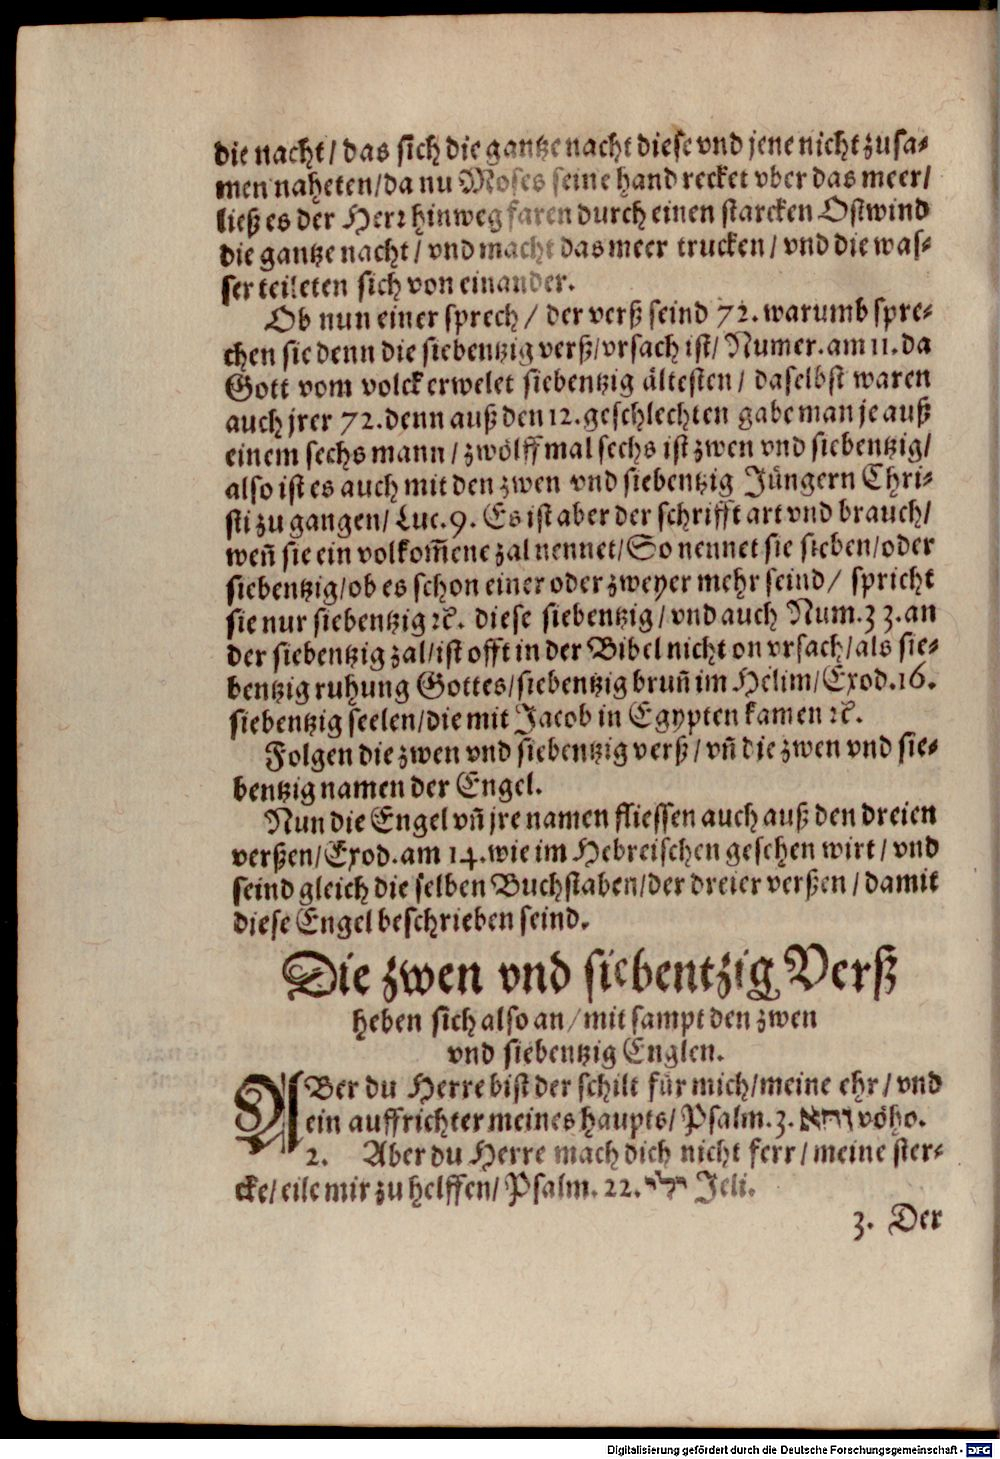 die nacht/ das sich die gantze nacht diese vnd jene nicht zusa-
men naheten/ da nu Moses seine hand recket vber das meer/
ließ es der Herr hinweg faren durch einen starcken Ostwind
die gantze nacht/ vnd macht das meer trucken/ vnd die was-
ser teileten sich von einander.
Ob nun einer sprech/ der verß seind 72. warumb spre-
chen sie denn die siebentzig verß/ vrsach ist/ Numer. am 11. da
Gott vom volck erwelet siebentzig ältesten/ daselbst waren
auch jrer 72. denn auß den 12. geschlechten gabe man je auß
einem sechs mann/ zwölff mal sechs ist zwen vnd siebentzig/
also ist es auch mit den zwen vnd siebentzig Jüngern Chri-
sti zu gangen/ Luc. 9. Es ist aber der schrifft art vnd brauch/
weñ sie ein volkom̃ene zal nennet/ So nennet sie sieben/ oder
siebentzig/ ob es schon einer oder zweyer mehr seind/ spricht
sie nur siebentzig ꝛc. diese siebentzig/ vnd auch Num. 33. an
der siebentzig zal/ ist offt in der Bibel nicht on vrsach/ als sie-
bentzig ruhung Gottes/ siebentzig bruñ im Helim/ Exod. 16.
siebentzig seelen/ die mit Jacob in Egypten kamen ꝛc.
Folgen die zwen vnd siebentzig verß/ vñ die zwen vnd sie-
bentzig namen der Engel.
Nun die Engel vñ jre namen fliessen auch auß den dreien
verßen/ Exod. am 14. wie im Hebreischen gesehen wirt/ vnd
seind gleich die selben Buchstaben/ der dreier verßen/ damit
diese Engel beschrieben seind.
Die zwen vnd siebentzig Verß
heben sich also an/ mit sampt den zwen
vnd siebentzig Englen.
ABer du Herre bist der schilt für mich/ meine ehr/ vnd
ein auffrichter meines haupts/ Psalm. 3. vöho.
2. Aber du Herre mach dich nicht ferr/ meine ster-
cke/ eile mir zu helffen/ Psalm. 22. ילי Jeli.
3. Der
Digitalisierung gefördert durch die Deutsche Forschungsgemeinschaft - DFG